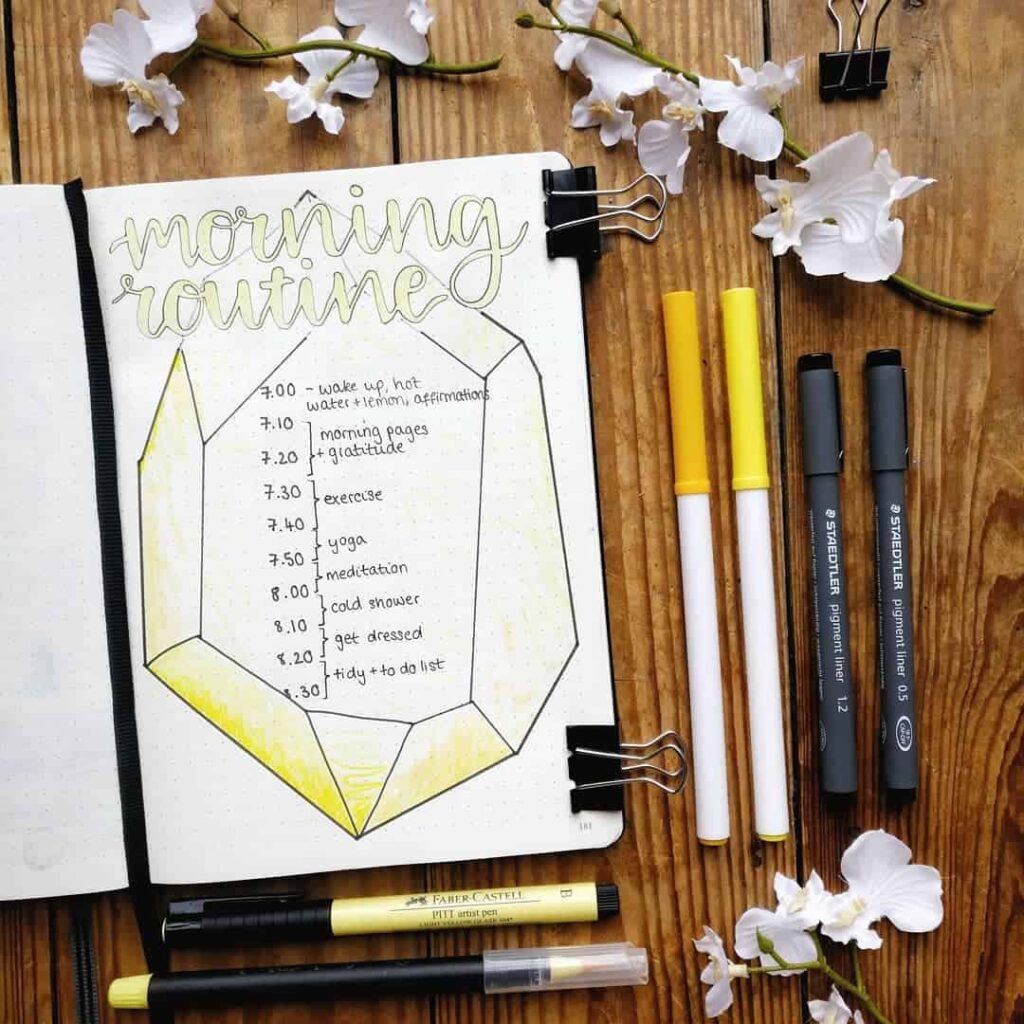 morning
routine
7.00 - wake up, hot
water + lemon, affirmations
7.10
morning pages
7.20 + gratitude
7.30
exercise
7.40
yoga
7.50
meditation
8.00
cold shower
8.10
get dressed
8.20
tidy + to do list
8.30
181
STAEDTLER pigment liner 1.2
STAEDTLER pigment liner 0.5
FABER-CASTELL
PITT artist pen
B